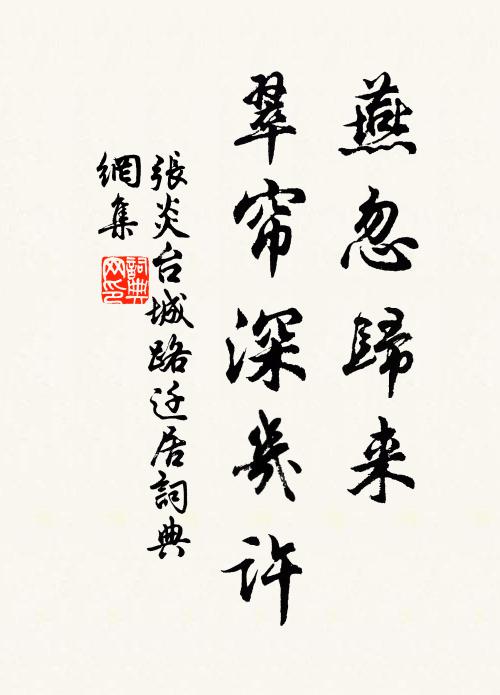 燕忽歸来
翠帘深幾許
張炎台城路迁居詞典
網集
詞典
网印